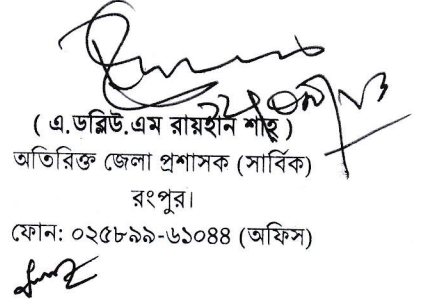 ( এ.ডব্লিউ.এম রায়হান শাহ্ )
অতিরিক্ত জেলা প্রশাসক (সার্বিক)
রংপুর।
ফোন: ০২৫৮৯৯-৬১০৪৪ (অফিস)